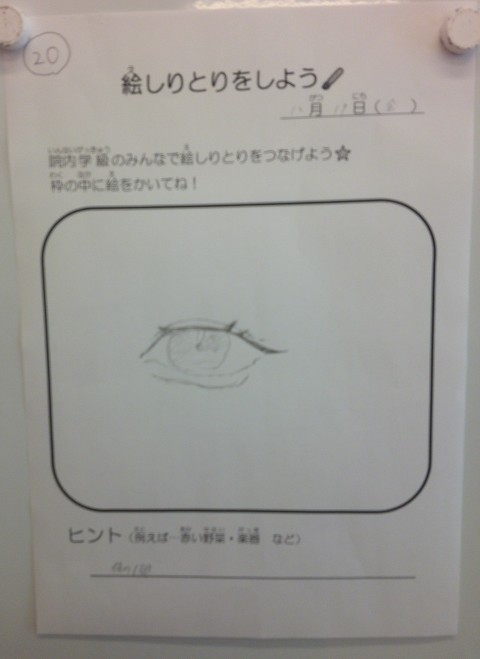 20
絵しりとりをしよう
月 日( )
院内学級のみんなで絵しりとりをつなげよう☆
枠の中に絵をかいてね！
ヒント(例えば…赤い野菜・楽器 など)